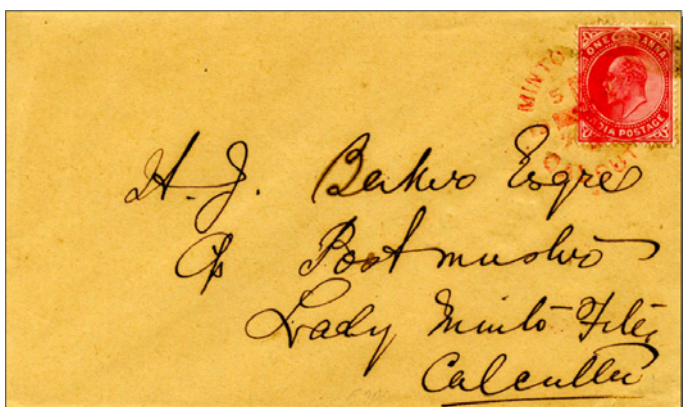 ONE ANNA
INDIA POSTAGE
MINTO
H. J. Bekers Esqre
c/o Postmaster
Lady Minto Fête,
Calcutta